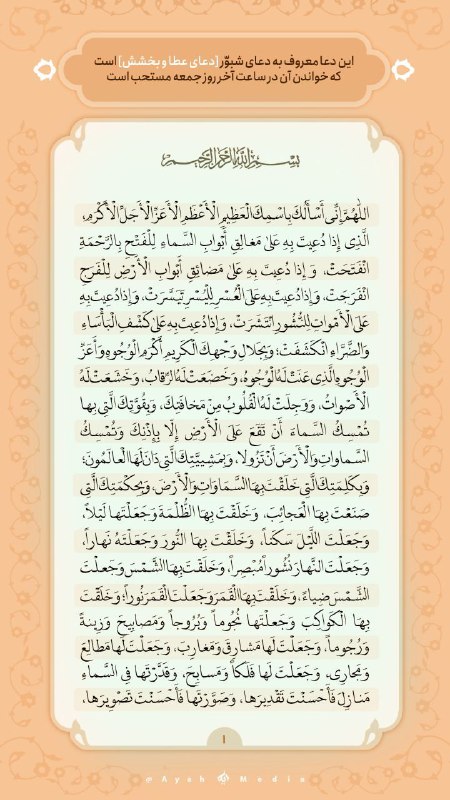 این دعا معروف به دعای شبوّر [دعای عطا و بخشش] است
که خواندن آن در ساعت آخر روز جمعه مستحب است
بِسْمِ اللَّهِ الرَّحْمَٰنِ الرَّحِيمِ
اَللّٰهُمَّ إِنِّی أَسْأَلُكَ بِاسْمِكَ الْعَظِیمِ الْأَعْظَمِ الْأَعَزِّ الْأَجَلِّ الْأَكْرَمِ،
الَّذِی إِذا دُعِیتَ بِهِ عَلیٰ مَغالِقِ أَبْوابِ السَّماءِ لِلْفَتْحِ بِالرَّحْمَةِ
انْفَتَحَتْ، وَ إِذا دُعِیتَ بِهِ عَلیٰ مَضائِقِ أَبْوابِ الْأَرْضِ لِلْفَرَجِ
انْفَرَجَتْ، وَ إِذا دُعِیتَ بِهِ عَلَی الْعُسْرِ لِلْیُسْرِ تَیَسَّرَتْ، وَ إِذا دُعِیتَ بِهِ
عَلَی الْأَمْواتِ لِلنُّشُورِ انْتَشَرَتْ، وَ إِذا دُعِیتَ بِهِ عَلیٰ كَشْفِ الْبَأْساءِ
وَ الضَّرَّاءِ انْكَشَفَتْ؛ وَ بِجَلالِ وَجْهِكَ الْكَرِیمِ أَكْرَمِ الْوُجُوهِ وَ أَعَزِّ
الْوُجُوهِ الَّذِی عَنَتْ لَهُ الْوُجُوهُ، وَ خَضَعَتْ لَهُ الرِّقابُ، وَ خَشَعَتْ لَهُ
الْأَصْواتُ، وَ وَجِلَتْ لَهُ الْقُلُوبُ مِنْ مَخافَتِكَ، وَ بِقُوَّتِكَ الَّتِی بِها
تُمْسِكُ السَّماءَ أَنْ تَقَعَ عَلَی الْأَرْضِ إِلّا بِإِذْنِكَ وَ تُمْسِكُ
السَّماواتِ وَ الْأَرْضَ أَنْ تَزُولا، وَ بِمَشِیَّتِكَ الَّتِی دَانَ لَهَا الْعالَمُونَ؛
وَ بِكَلِمَتِكَ الَّتِی خَلَقْتَ بِهَا السَّمَاوَاتِ وَ الْأَرْضَ، وَ بِحِكْمَتِكَ الَّتِی
صَنَعْتَ بِهَا الْعَجائِبَ، وَ خَلَقْتَ بِهَا الظُّلْمَةَ وَ جَعَلْتَها لَیْلاً،
وَ جَعَلْتَ اللَّیْلَ سَكَناً، وَ خَلَقْتَ بِهَا النُّورَ وَ جَعَلْتَهُ نَهاراً،
وَ جَعَلْتَ النَّهارَ نُشُوراً مُبْصِراً، وَ خَلَقْتَ بِهَا الشَّمْسَ وَ جَعَلْتَ
الشَّمْسَ ضِیاءً، وَ خَلَقْتَ بِهَا الْقَمَرَ وَ جَعَلْتَ الْقَمَرَ نُوراً؛ وَ خَلَقْتَ
بِهَا الْكَواكِبَ وَ جَعَلْتَها نُجُوماً وَ بُرُوجاً وَ مَصابِیحَ وَ زِینَةً
وَ رُجُوماً، وَ جَعَلْتَ لَها مَشارِقَ وَ مَغارِبَ، وَ جَعَلْتَ لَها مَطالِعَ
وَ مَجارِیَ، وَ جَعَلْتَ لَها فَلَكاً وَ مَسابِحَ، وَ قَدَّرْتَها فِی السَّماءِ
مَنازِلَ فَأَحْسَنْتَ تَقْدِیرَها، وَ صَوَّرْتَها فَأَحْسَنْتَ تَصْوِیرَها،
۱
@Ayeh Media